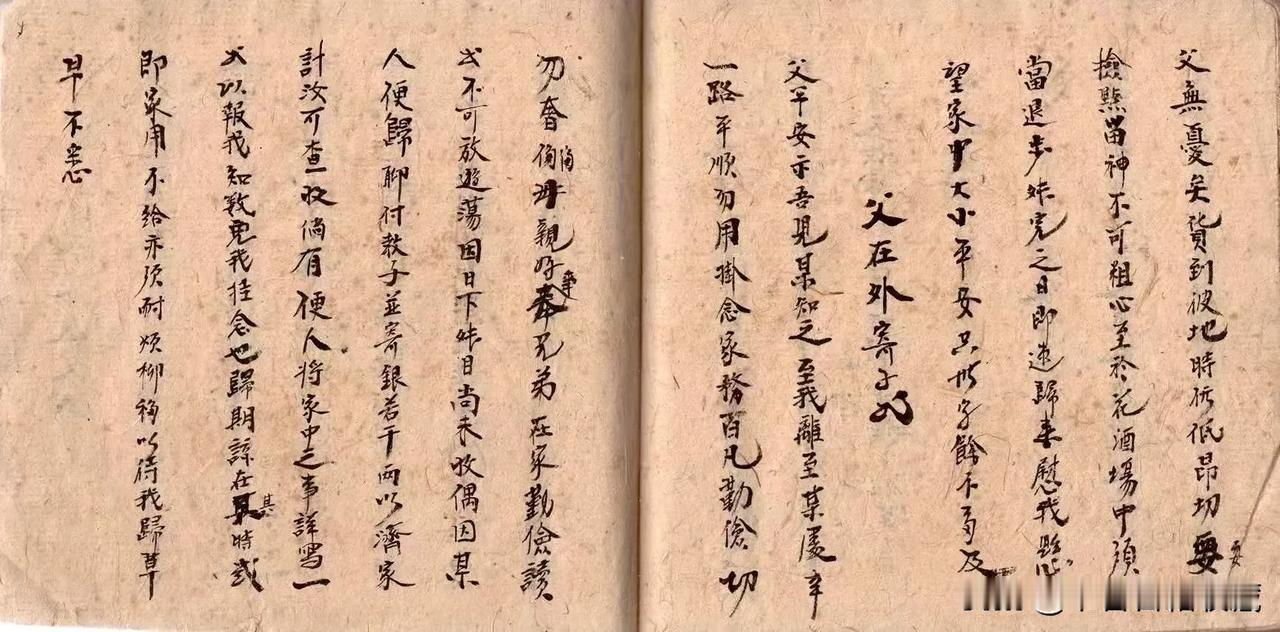 父無憂矣貨到彼地時價低昂切要要
檢點留神不可粗心至於花酒場中須
當退步妹完之日即速歸來慰我懸
望家中大小平安只此字餘不多及
父在外寄子的
父平安示吾兒某知之至我離至某處幸
一路平順勿用掛念家務百凡勤儉切
勿奢侈母親好奉兄弟在家勤儉讀
不可放遊蕩因目下妹目尚未收偶因某
人便歸聊付数子並寄銀若干兩以濟家
計汝可查收倘有便人將家中之事詳寫一
以報我知致免我挂念也歸期諒在其時或
即家用不給亦須耐煩挪移以待我歸草
早不悉